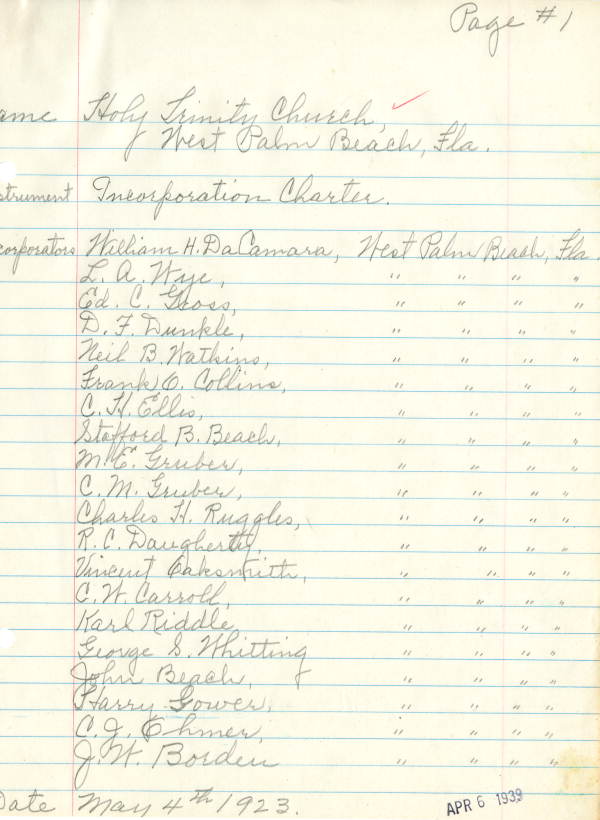 Page #1
ame Holy Trinity Church,
West Palm Beach, Fla.
strument Incorporation Charter.
corporators William H. DaCamara, West Palm Beach, Fla.
L. A. Wye, " " " "
Ed. C. Gross, " " " "
D. F. Dunkle, " " " "
Neil B. Watkins, " " " "
Frank O. Collins, " " " "
C. H. Ellis, " " " "
Stafford B. Beach, " " " "
M. E. Gruber, " " " "
C. M. Gruber, " " " "
Charles H. Ruggles, " " " "
R. C. Daugherty, " " " "
Vincent Oaksmith, " " " "
C. W. Carroll, " " " "
Karl Riddle, " " " "
George S. Whitting " " " "
John Beach, " " " "
Harry Gower, " " " "
C. J. Ehmer, " " " "
J. W. Borden " " " "
Date May 4th 1923.
APR 6 1939